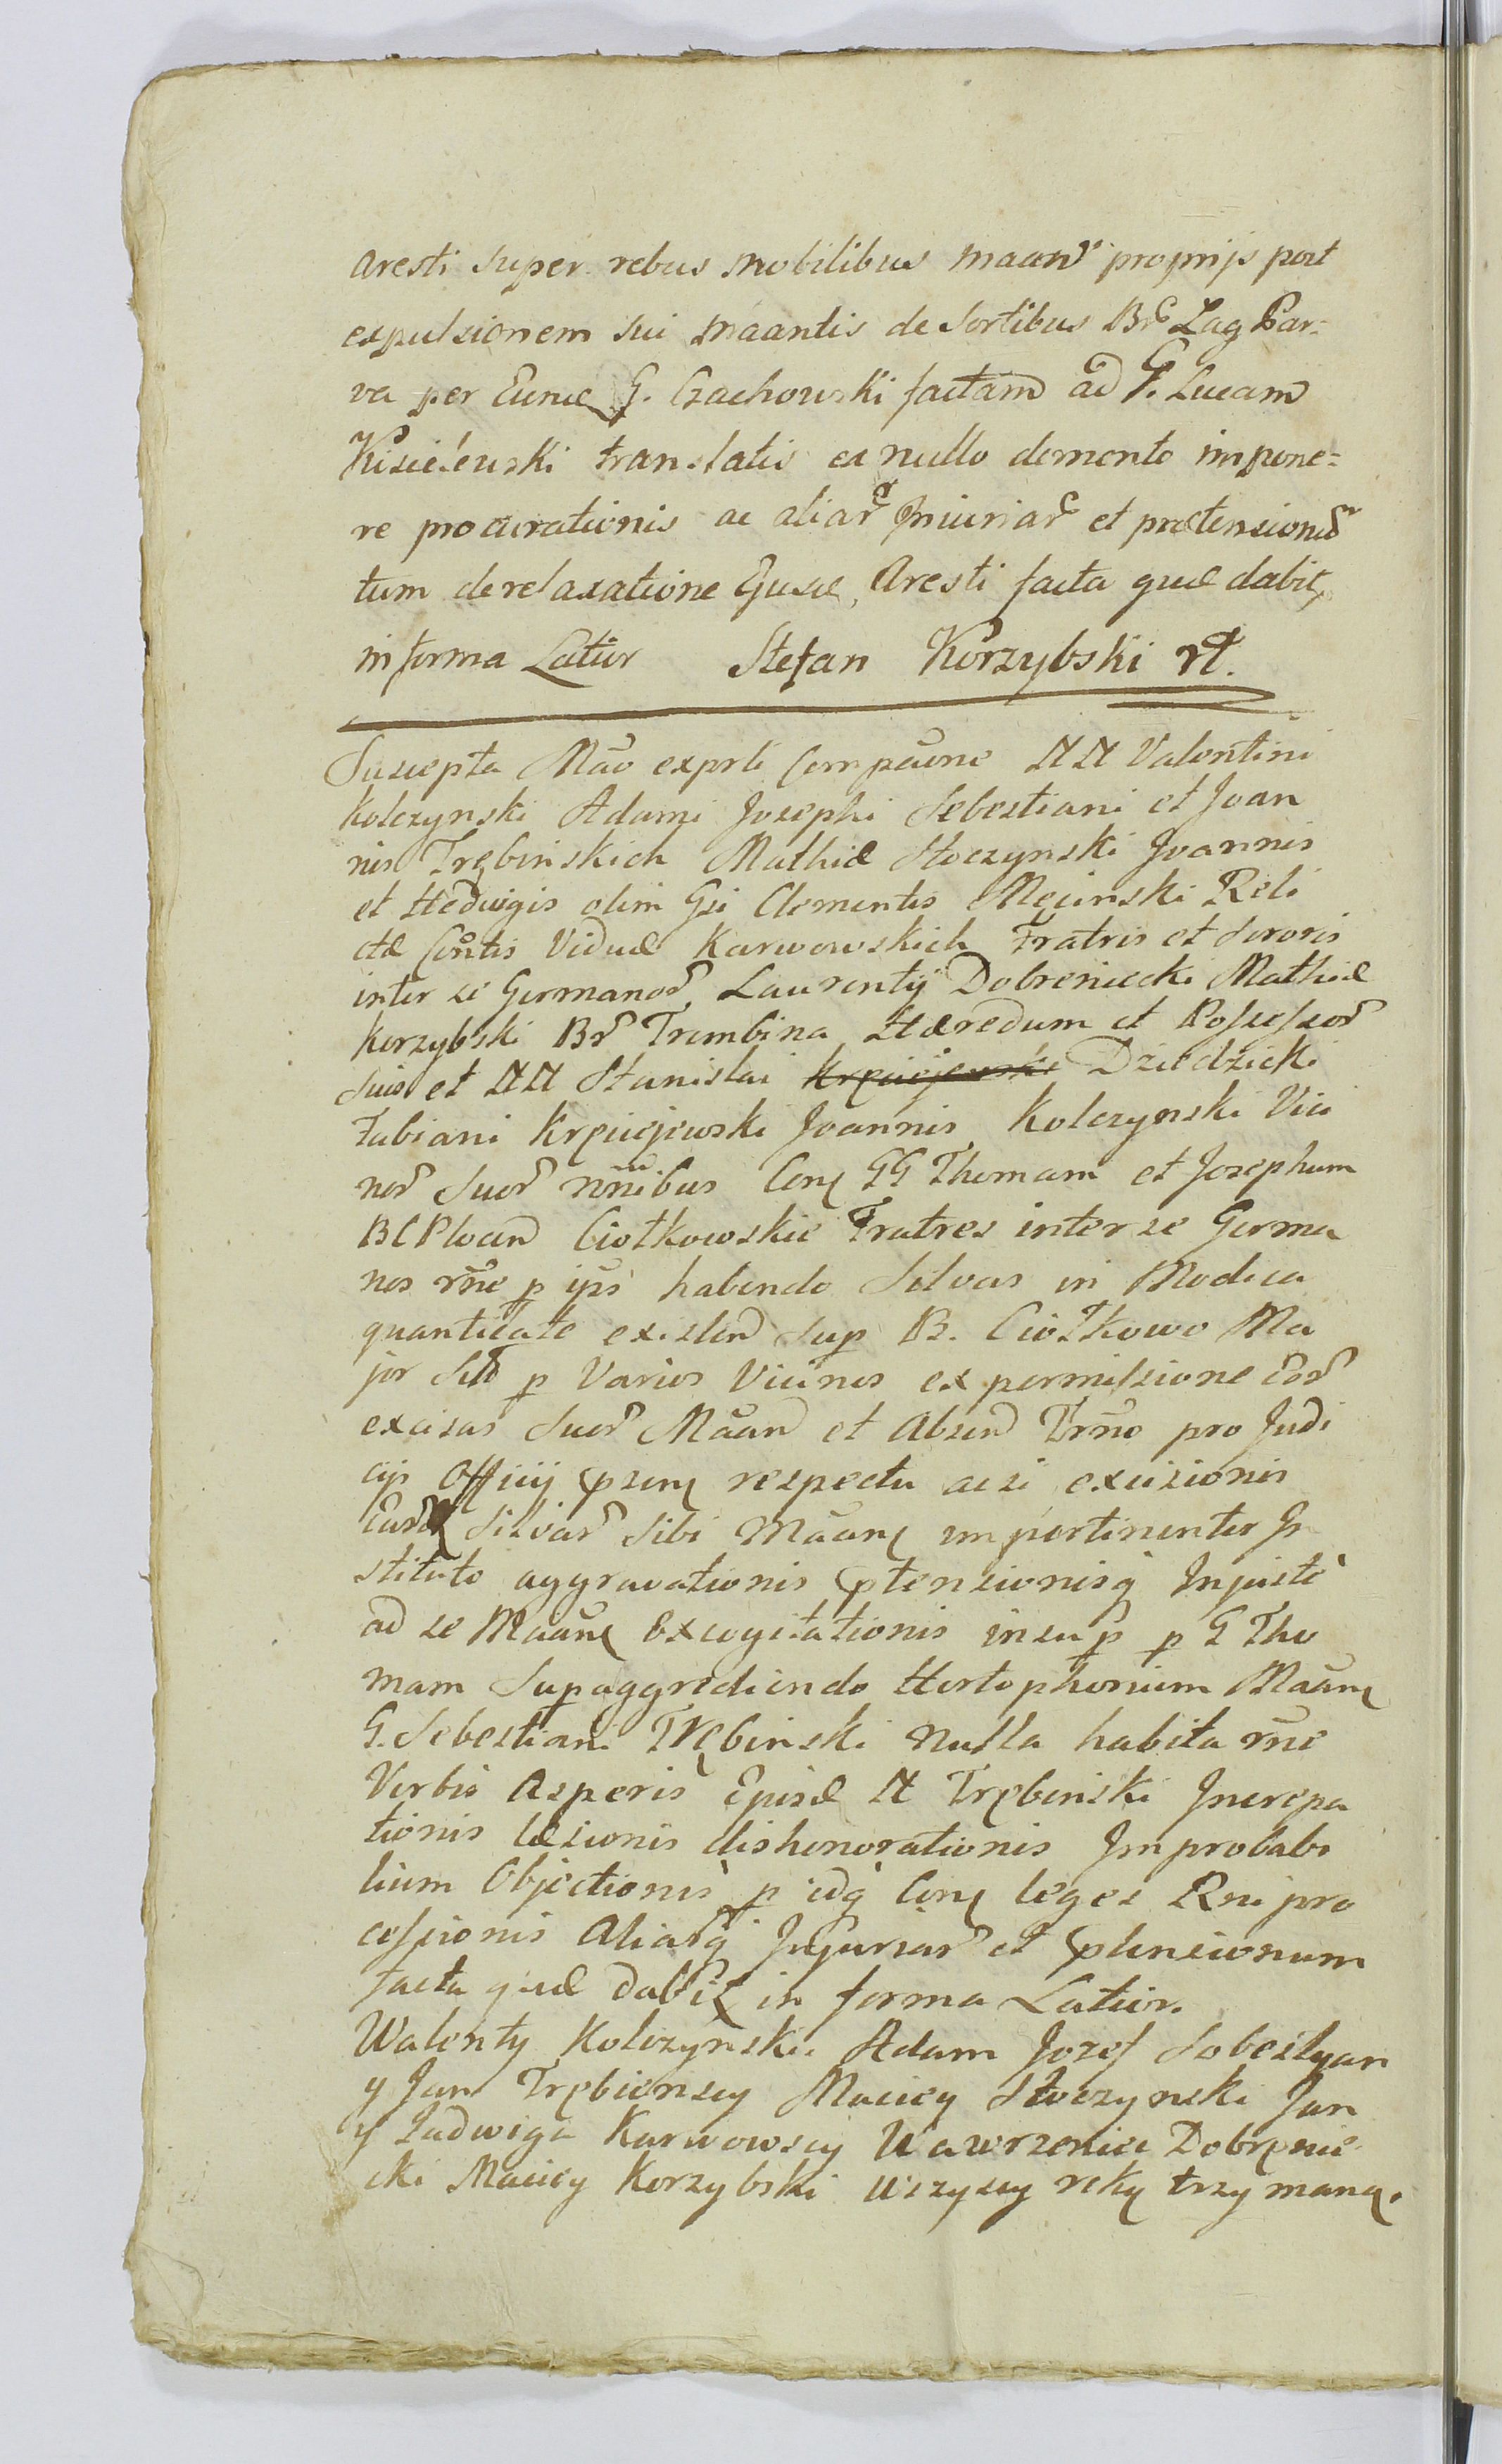 Aresti super rebus mobilibus maand proprijs post
expulsionem sui maantis de Sortibus Br Lag Par=
va per Eund G. Czachowski factam ad G. Lucam
Kisielewski translatis ea nullo demento impone=
re procurationis ac aliar Iniuriar et prætensionum
tum de relaxatione Ejusd, Aresti facta quæ dabit
in forma Latior Stefan Korzybski rt.
Suscepta Mão exprti Compãone NN Valentini
Kolczynski Adami Josephi Sebestiani et Joan
nis Trębinskich Mathiæ Stoczynski Joannis
et Hedwigis olim Gsi Clementis Męcinski Reli
ctæ Contis Viduæ Karwowskich Fratris et Sororis
inter se Germanor, Laurentÿ Dobreniecki Mathiæ
Korzybski Br Trembina Hæredum et Possessor
suis et NN Stanislai Krpiejewski Dziedzicki
Fabiani Krpiejewski Joannis Kolczynski Vici
nor Suor nõnibus Conq GG Thomam et Josephum
BCPloand Ciotkowskie Fratres inter se Germa
nos rñe p ips habendo Silvas in Modica
quantitate existen Sup B. Ciotkowo Ma
jor Sit p Varios Vicinos ex permissione eor
excisas Suor Mãand et Absend Trño pro Judi
cijs Officij psenq respectu acsi excisionis
Eard Silvar Sibi Mãanq impertinenter In
stituto aggravationis ptensionisq Injustè
ad se Mãanq Excogitationis insup p G Tho
mam Sup aggrediendo Hortophorium Mãanq
G. Sebestiani Trębinski nulla habita rñe
Verbis Asperis Ejusd N Trębinski Increpa
tionis læsionis dishonorationis Improbabi
lium Objectionis p idq Conq leges Rni pro
cessionis Aliarq Injuriar et ptensionum
facta quæ dabit in forma Latior.
Walenty Kolczynski Adam Jozef Sobestyan
y Jan Trębienscy Maciey Stoczynski Jan
y Jadwiga Karwowscy Wawrzeniec Dobręnie
cki Maciey Korzybski wszyscy ręką trzymaną.